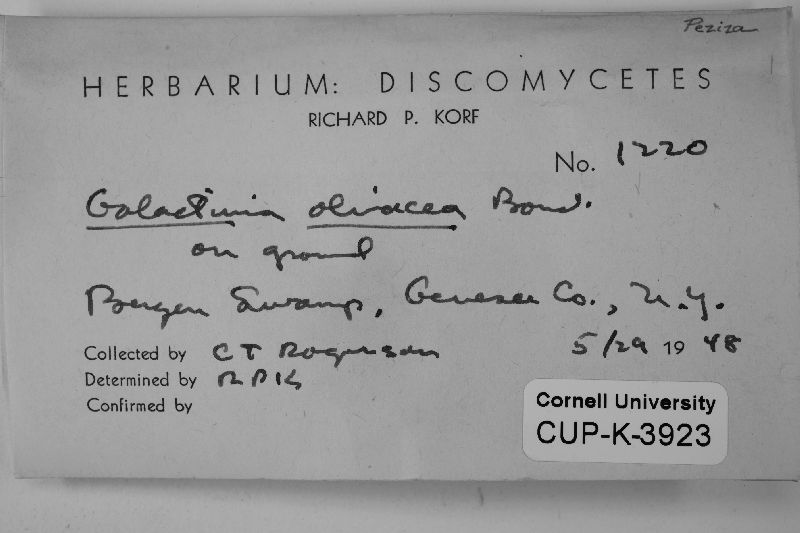 Peziza
HERBARIUM: DISCOMYCETES
RICHARD P. KORF
No. 1220
Galactinia olivacea Boud.
on ground
Bergen Swamp, Genesee Co., N.Y.
Collected by C T Rogerson 5/29 1948
Determined by RPK
Confirmed by
Cornell University
CUP-K-3923